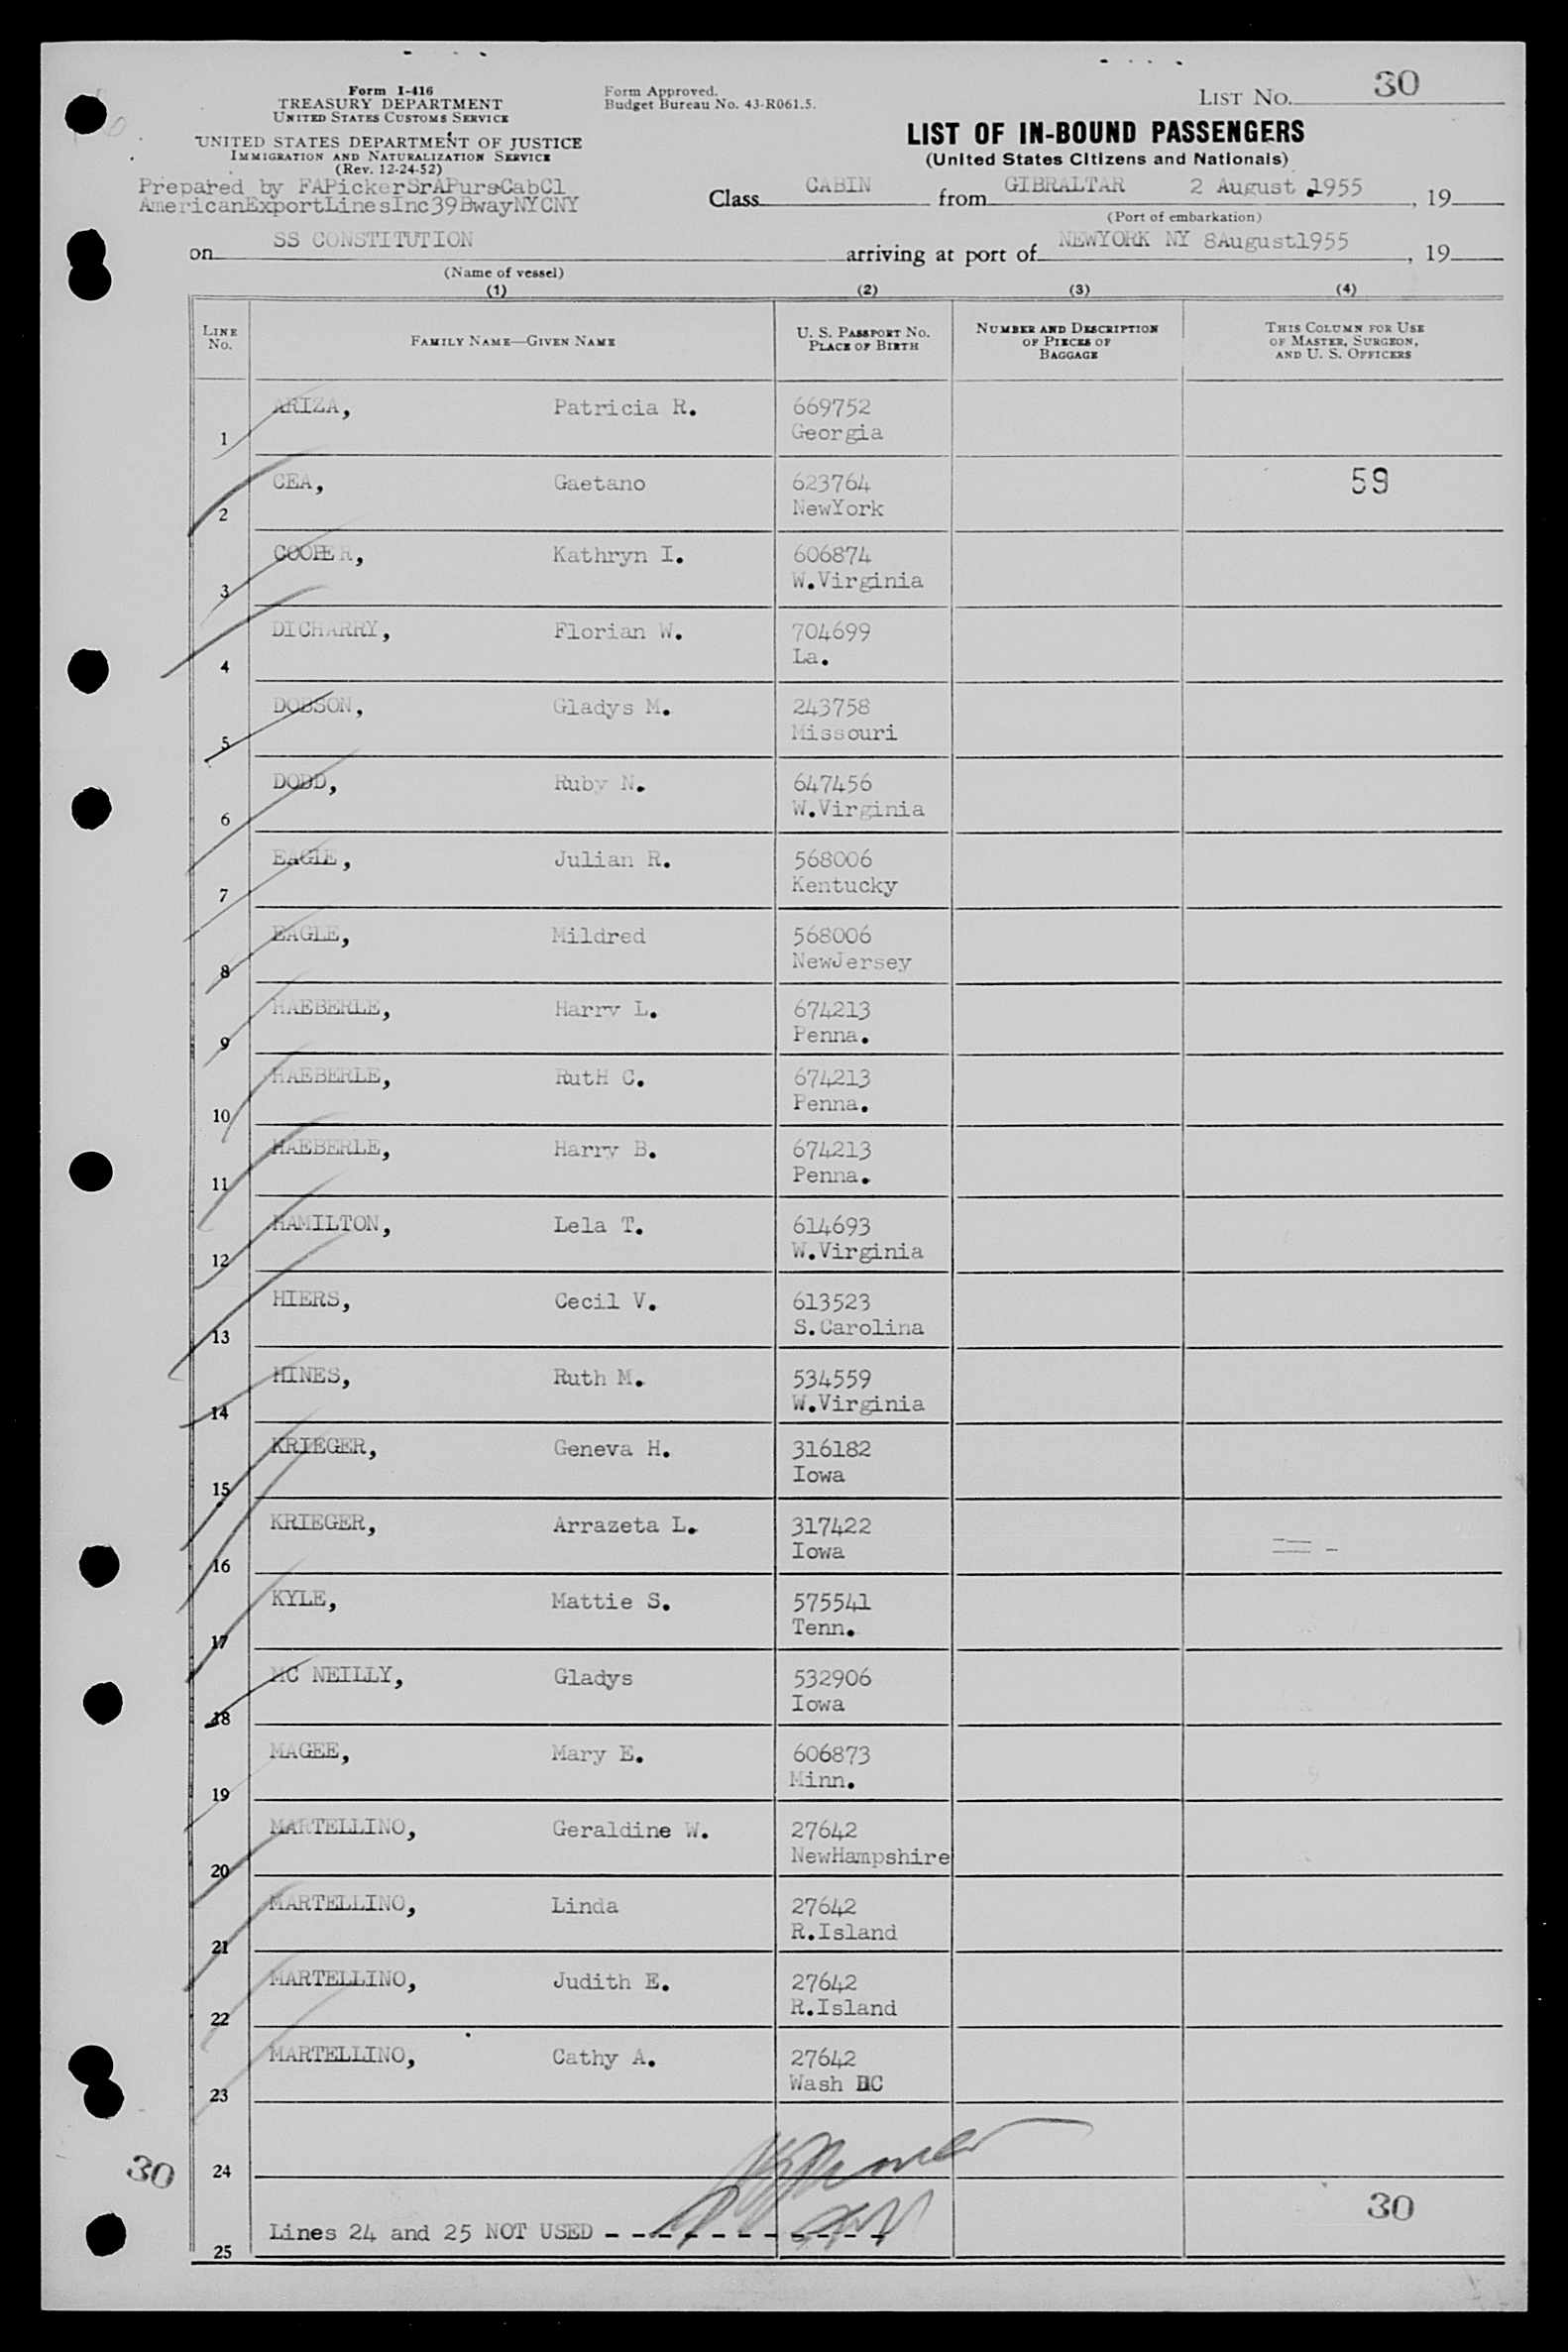 Form I-416
TREASURY DEPARTMENT
UNITED STATES CUSTOMS SERVICE
UNITED STATES DEPARTMENT OF JUSTICE
IMMIGRATION AND NATURALIZATION SERVICE
(Rev. 12-24-52)
Prepared by FAPickerSrAPursCabCl
AmericanExportLinesInc39BwayNYCNY
Form Approved.
Budget Bureau No. 43-R061.5.
LIST No. 30
LIST OF IN-BOUND PASSENGERS
(United States Citizens and Nationals)
Class CABIN from GIBRALTAR 2 August 1955, 19
(Port of embarkation)
on SS CONSTITUTION arriving at port of NEWYORK NY 8August1955, 19
(Name of vessel)
(1) (2) (3) (4)
LINE No. FAMILY NAME—GIVEN NAME U. S. PASSPORT NO. PLACE OF BIRTH NUMBER AND DESCRIPTION OF PIECES OF BAGGAGE THIS COLUMN FOR USE OF MASTER, SURGEON, AND U. S. OFFICERS
ARIZA, Patricia R. 669752
1 Georgia
CEA, Gaetano 623764 59
2 NewYork
COOPER, Kathryn I. 606874
3 W.Virginia
DICHARRY, Florian W. 704699
4 La.
DOBSON, Gladys M. 243758
5 Missouri
DODD, Ruby N. 647456
6 W.Virginia
EAGLE, Julian R. 568006
7 Kentucky
EAGLE, Mildred 568006
8 NewJersey
HAEBERLE, Harry L. 674213
9 Penna.
HAEBERLE, RutH C. 674213
10 Penna.
HAEBERLE, Harry B. 674213
11 Penna.
HAMILTON, Lela T. 614693
12 W.Virginia
HIERS, Cecil V. 613523
13 S.Carolina
HINES, Ruth M. 534559
14 W.Virginia
KRIEGER, Geneva H. 316182
15 Iowa
KRIEGER, Arrazeta L. 317422
16 Iowa
KYLE, Mattie S. 575541
17 Tenn.
MC NEILLY, Gladys 532906
18 Iowa
MAGEE, Mary E. 606873
19 Minn.
MARTELLINO, Geraldine W. 27642
20 NewHampshire
MARTELLINO, Linda 27642
21 R.Island
MARTELLINO, Judith E. 27642
22 R.Island
MARTELLINO, Cathy A. 27642
23 Wash DC
30 24
30
Lines 24 and 25 NOT USED - - - - - - - - - - -
25